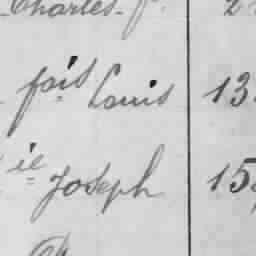 Charles
fois Louis 13
ie Joseph 15